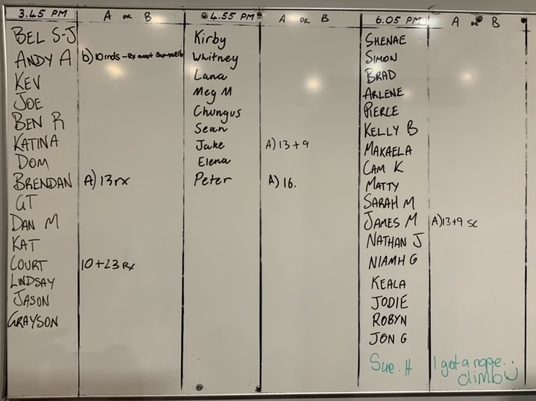 3.45 PM A OR B
BEL S-J
ANDY A b) 10 rnds - Rx
KEV
JOE
BEN R
KATINA
DOM
BRENDAN A) 13 rx
GT
DAN M
KAT
COURT 10+23 Rx
LINDSAY
JASON
GRAYSON
4.55 PM A OR B
Kirby
Whitney
Lana
Meg M
Chungus
Sean
Jake A) 13+9
Elena
Peter A) 16.
6.05 PM A OR B
SHENAE
SIMON
BRAD
ARLENE
PIERCE
KELLY B
MAKAELA
CAM K
MATTY
SARAH M
JAMES M A) 13+9 SC
NATHAN J
NIAMH G
KEALA
JODIE
ROBYN
JON G
Sue. H I got a rope...
climb